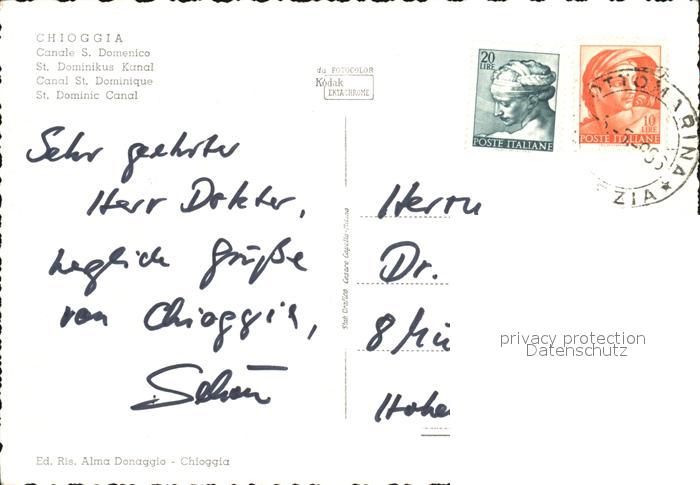 CHIOGGIA
Canale S. Domenico
St. Dominikus Kanal
Canal St. Dominique
St. Dominic Canal
da FOTOCOLOR
Kodak
EKTACHROME
20
LIRE
POSTE ITALIANE
10
LIRE
POSTE ITALIANE
OTTOMARINA
EZIA ★
Sehr geehrter
Herr Doktor,
herzlich Grüße
von Chioggia,
Herrn
Dr.
8 Mü
Hohe
privacy protection
Datenschutz
Ed. Ris. Alma Donaggio - Chioggia